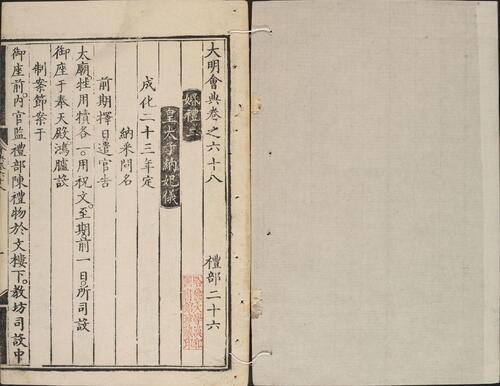 大明會典卷之六十八
禮部二十六
婚禮二
皇太子納妃儀
成化二十三年定
納采問名
前期擇日遣官告
太廟。牲用犢各一。用祝文。至期前一日。所司設
御座于奉天殿鴻臚設
制案節案于
御座前。內官監禮部陳禮物於文樓下。教坊司設中